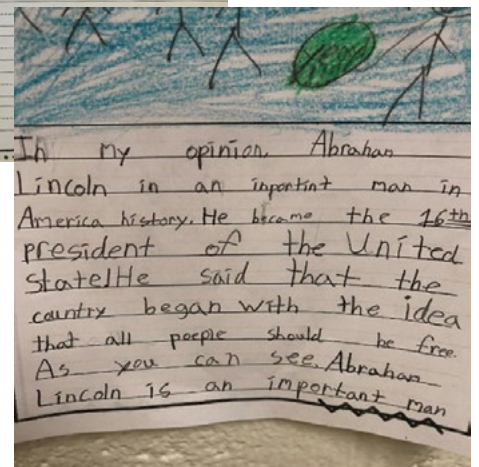 In my opinion, Abrahan
Lincoln in an inportint man in
America history. He became the 16th
president of the United
State!He said that the
country began with the idea
that all poeple should be free.
As you can see, Abrahan
Lincoln is an important man